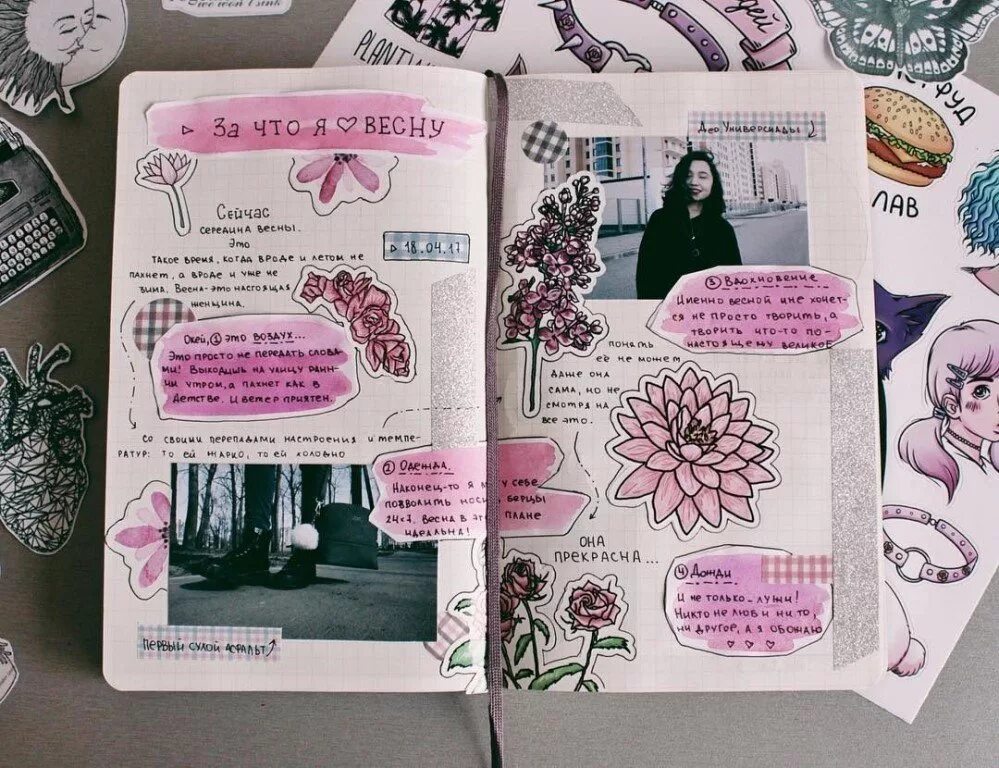 we won't sink
PLANTING
▷ За что я ♡ весну
Сейчас
середина весны.
Это
такое время, когда вроде и летом не
пахнет, а вроде и уже не
зима. Весна-это настоящая
женщина.
▷ 18.04.17
Окей, ① это воздух...
Это просто не передать слова-
ми! Выходишь на улицу ранн-
им утром, а пахнет как в
детстве. И ветер приятен.
Со своими перепадами настроения и темпе-
ратур: то ей жарко, то ей холодно
② Одежда.
Наконец-то я м у себе
позволить носи берцы
24×7. Весна в эт плане
идеальна!
Первый сухой асфальт
Део Универсиады
③ Вдохновение
Именно весной мне хочет-
ся не просто творить, а
творить что-то по-
настоящему великое
понять
её не может
даже она
сама, но не
смотря на
все это.
она
прекрасна...
④ Дожди
И не только-лужи!
Никто не люби ни то,
ни другое, а я обожаю
♡ ♡ ♡
дей
фуд
лав